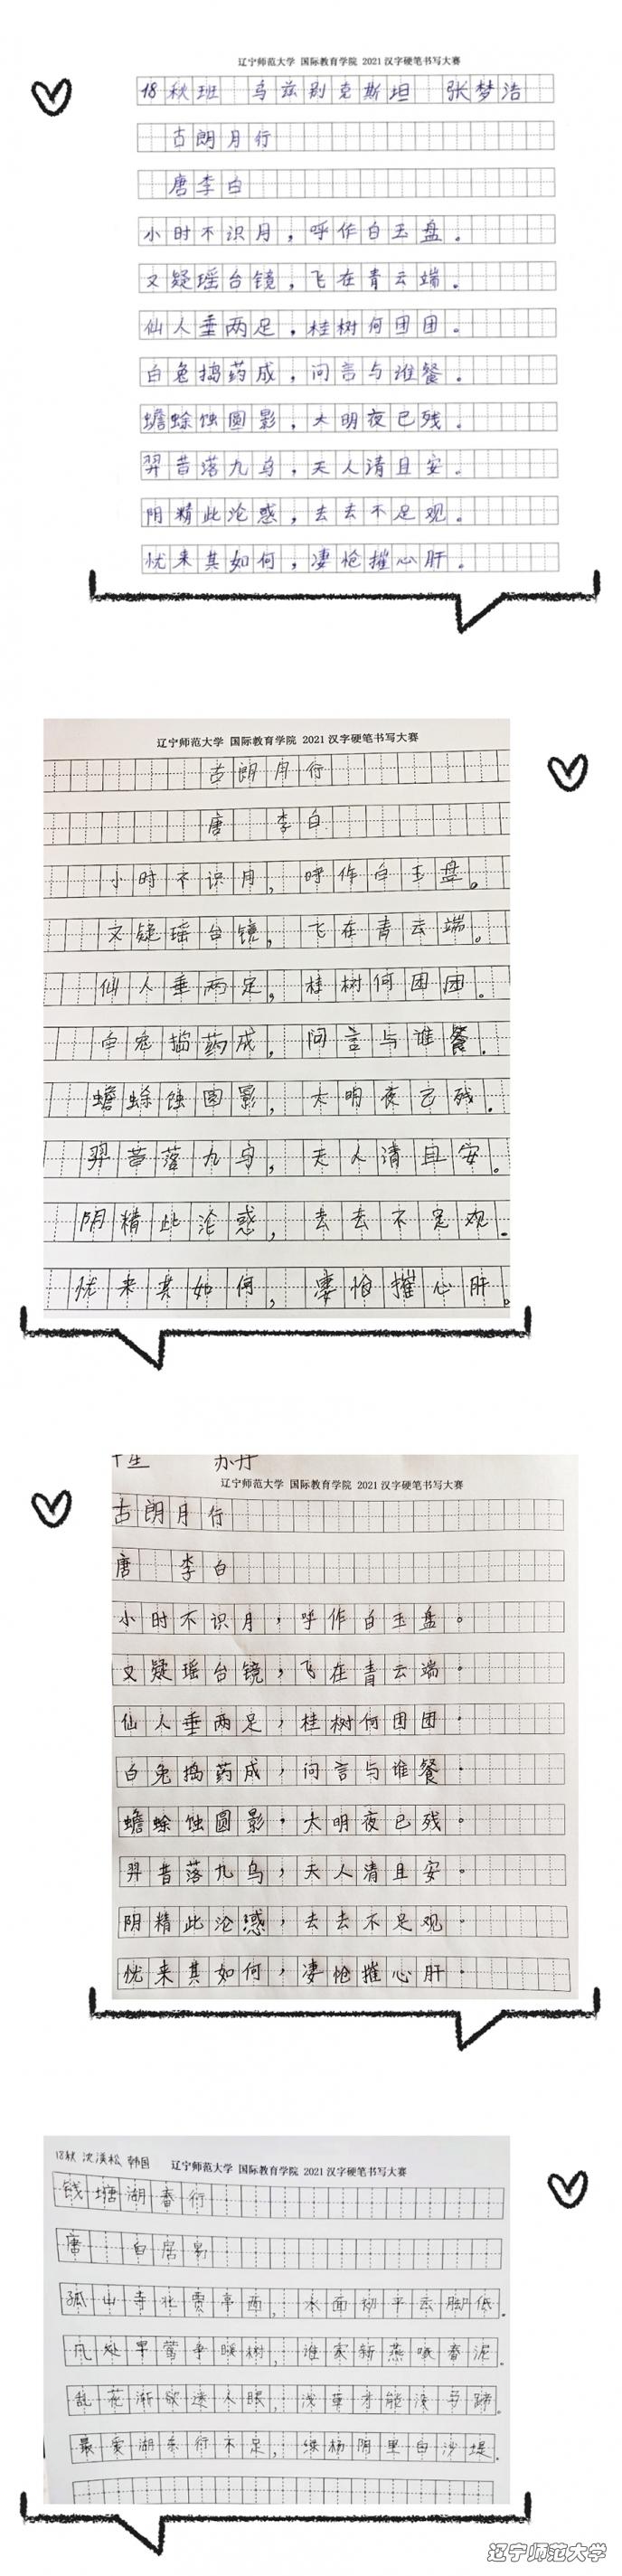 辽宁师范大学 国际教育学院 2021 汉字硬笔书写大赛
18 秋班 乌兹别克斯坦 张梦浩
古朗月行
唐李白
小时不识月，呼作白玉盘。
又疑瑶台镜，飞在青云端。
仙人垂两足，桂树何团团。
白兔捣药成，问言与谁餐。
蟾蜍蚀圆影，大明夜已残。
羿昔落九乌，天人清且安。
阴精此沦惑，去去不足观。
忧来其如何，凄怆摧心肝。
辽宁师范大学 国际教育学院 2021 汉字硬笔书写大赛
古朗月行
唐 李白
小时不识月，呼作白玉盘。
又疑瑶台镜，飞在青云端。
仙人垂两足，桂树何团团。
白兔捣药成，问言与谁餐。
蟾蜍蚀圆影，大明夜已残。
羿昔落九乌，天人清且安。
阴精此沦惑，去去不足观。
忧来其如何，凄怆摧心肝。
苏丹
辽宁师范大学 国际教育学院 2021 汉字硬笔书写大赛
古朗月行
唐 李白
小时不识月，呼作白玉盘。
又疑瑶台镜，飞在青云端。
仙人垂两足，桂树何团团。
白兔捣药成，问言与谁餐。
蟾蜍蚀圆影，大明夜已残。
羿昔落九乌，天人清且安。
阴精此沦惑，去去不足观。
忧来其如何，凄怆摧心肝。
18秋 沈渼松 韩国
辽宁师范大学 国际教育学院 2021 汉字硬笔书写大赛
钱塘湖春行
唐 白居易
孤山寺北贾亭西，水面初平云脚低。
几处早莺争暖树，谁家新燕啄春泥。
乱花渐欲迷人眼，浅草才能没马蹄。
最爱湖东行不足，绿杨阴里白沙堤。
辽宁师范大学